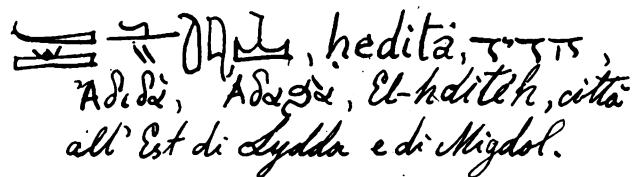 , ḥedità, חדיד,
Ἀδιδὰ, El-hditéh, città
all' Est di Lydda e di Migdol.